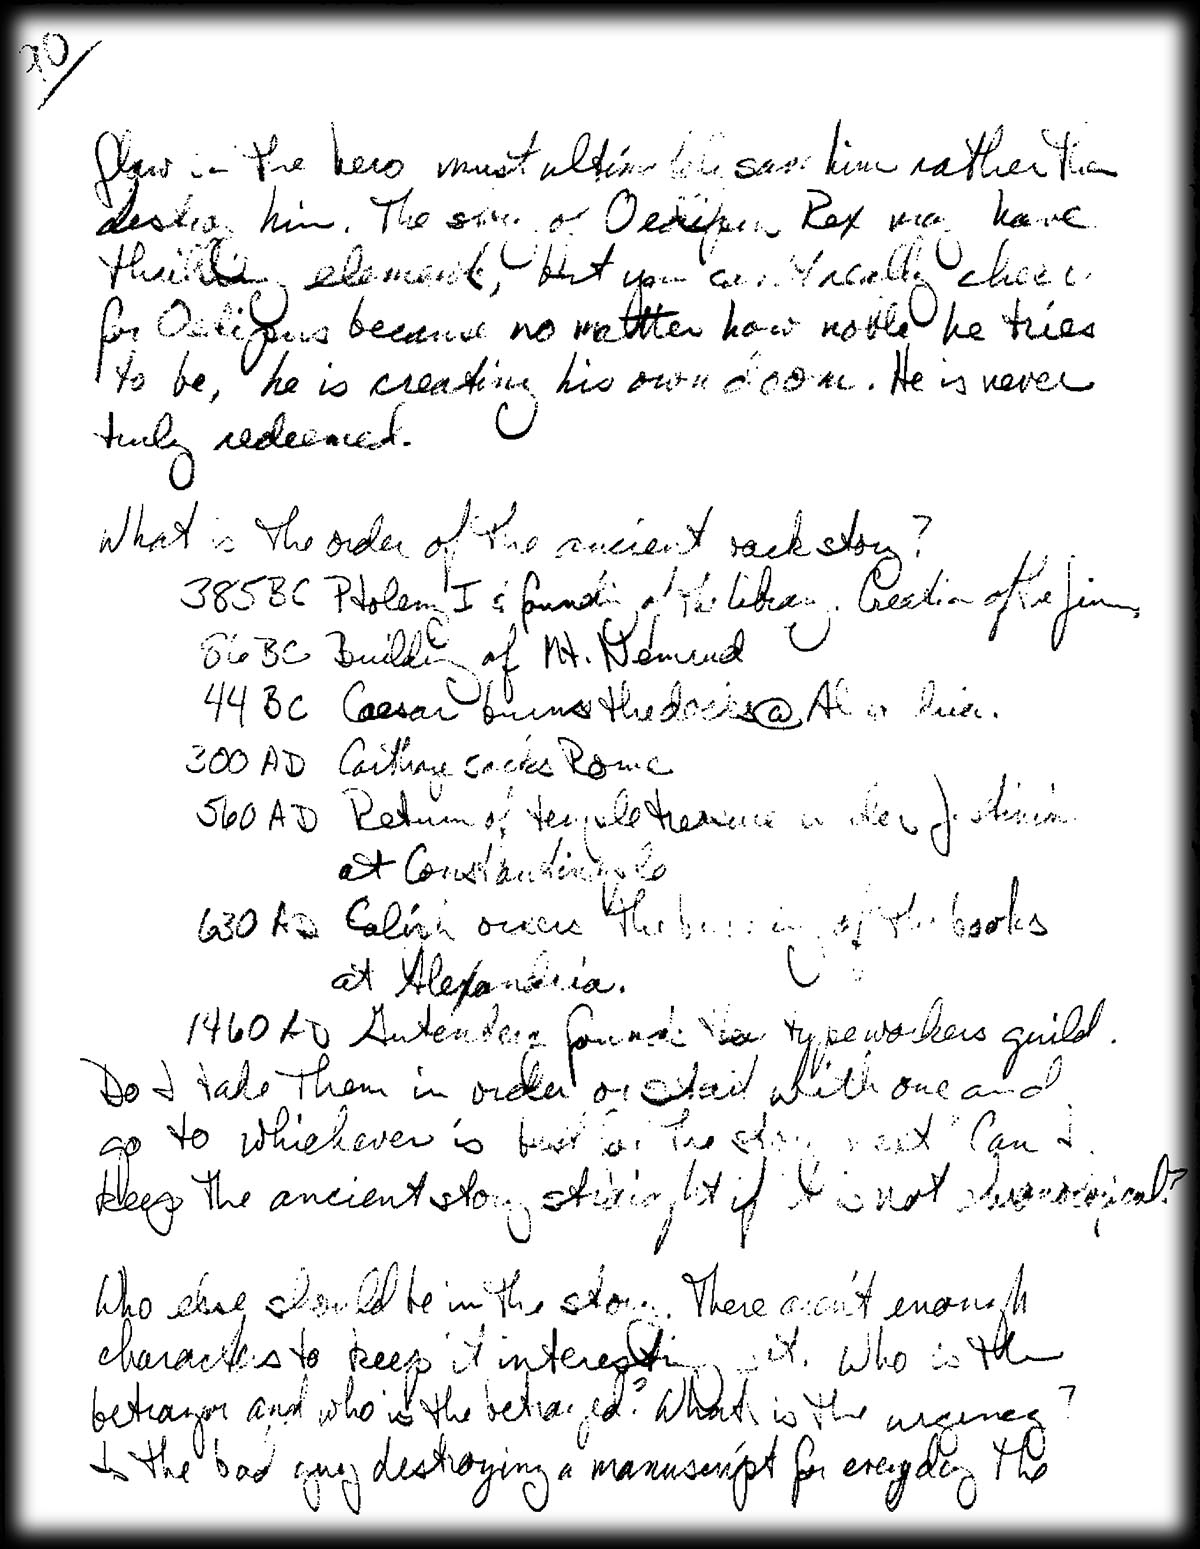 20
flaw in the hero must ultimately save him rather than
destroy him. The story of Oedipus Rex may have
thrilling elements, but you can't really cheer
for Oedipus because no matter how noble he tries
to be, he is creating his own doom. He is never
truly redeemed.
What is the order of the ancient back story?
385 BC Ptolemy I & founding of the library. Creation of the
86 BC Building of Mt. Nemrud
44 BC Caesar burns the docks @ Alexandria.
300 AD Carthage sacks Rome
560 AD Return of temple treasure under Justinian
at Constantinople
630 AD Caliph orders the burning of the books
at Alexandria.
1460 AD Gutenberg founds the typeworkers guild.
Do I take them in order or start with one and
go to whichever is best for the story next? Can I
keep the ancient story straight if it is not chronological?
Who else should be in the story. There aren't enough
characters to keep it interesting yet. Who is the
betrayor and who is the betrayed? What is the urgency?
Is the bad guy destroying a manuscript for everyday the